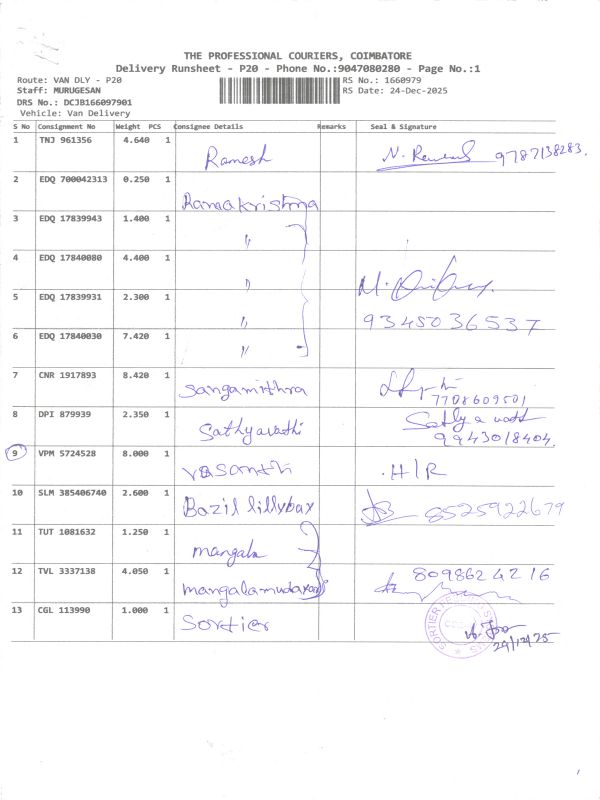 THE PROFESSIONAL COURIERS, COIMBATORE
Delivery Runsheet - P20 - Phone No.:9047080280 - Page No.:1
Route: VAN DLY - P20 RS No.: 1660979
Staff: MURUGESAN RS Date: 24-Dec-2025
DRS No.: DCJB166097901
Vehicle: Van Delivery
S No Consignment No Weight PCS Consignee Details Remarks Seal & Signature
1 TNJ 961356 4.640 1 Ramesh 9787138283.
2 EDQ 700042313 0.250 1 Ramakrishna
3 EDQ 17839943 1.400 1 "
4 EDQ 17840080 4.400 1 "
5 EDQ 17839931 2.300 1 " 9345036537
6 EDQ 17840030 7.420 1 "
7 CNR 1917893 8.420 1 Sangamithra 7708609501
8 DPI 879939 2.350 1 Sathyavathi 9943018404.
9 VPM 5724528 8.000 1 Vasanthi H/R
10 SLM 385406740 2.600 1 Bazil lillybay 8525922679
11 TUT 1081632 1.250 1 mangala
12 TVL 3337138 4.050 1 8098624216
13 CGL 113990 1.000 1 Sortier SORTIER
24/12/25